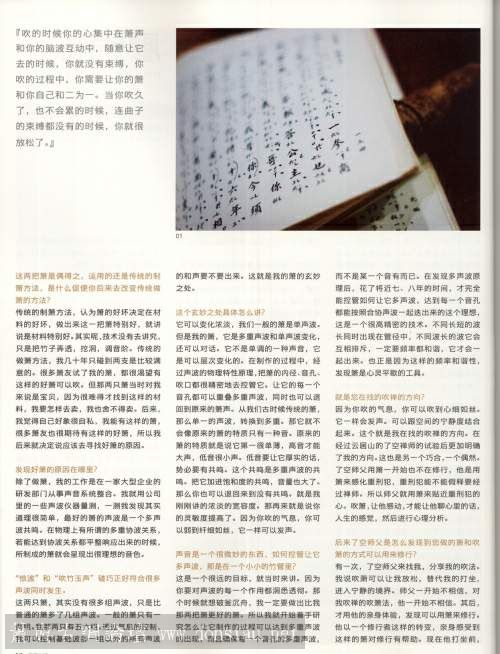 『吹的时候你的心集中在箫声
和你的脑波互动中，随意让它
去的时候，你就没有束缚，你
吹的过程中，你需要让你的箫
和你自己和二为一。当你吹久
了，也不会累的时候，连曲子
的束缚都没有的时候，你就很
放松了。』
01
这两把箫是偶得之，运用的还是传统的制
箫方法，是什么促使你后来去改变传统做
箫的方法？
传统的制箫方法，认为箫的好坏决定在材
料的好坏，做出来这一把箫特别好，就讲
说是材料特别好。其实呢，技术没有去讲究，
只是把竹子弄透，挖洞，调音阶。传统的
做箫方法，我几十年只碰到两支是比较满
意的。很多箫友试了我的箫，都很渴望有
这样的好箫可以吹。但那两只箫当时对我
来说是宝贝，因为很难得才找到这样的材
料，我要怎样去卖，我也舍不得卖。后来，
我觉得自己好象很自私，我能有这样的箫，
很多箫友也很期待有这样的好箫，所以我
后来就决定说应该去寻找好箫的原因。
发现好箫的原因在哪里？
除了做箫，我的工作是在一家大型企业的
研发部门从事声音系统整合。我就用公司
里的一些声波仪器量测，一测我发现其实
道理很简单，最好的箫的声波是一个多声
波共鸣。在物理上有所谓的多重协波关系，
若能达到协波关系都平整响应出来的时候，
所制成的箫就会呈现出很理想的音色。
这两只箫，其实没有很多组声波，只是比
普通的箫多了几组声波。一般的箫只有一
的和声要不要出来。这就是我的箫的玄妙
之处。
这个玄妙之处具体怎么讲？
它可以变化浓淡，我们一般的箫是单声波，
但是我的箫，它是多重声波和单声波变化，
还可以对话。它不是单调的一种声音，它
是可以层次变化的。在制作的过程中，经
过声波的物理特性原理，把箫的内径、音孔、
吹口都很精密地去控管它。让它的每一个
音孔都可以重叠多重声波，同时也可以退
回到原来的箫声。从我们古时候传统的箫，
那么单一的声波，转换到多重。那它就不
会像原来的箫的特质只有一种音。原来的
箫的特质就是说它第一很单薄，高音才能
大声，低音很小声。低音要让它厚实的话，
势必要有共鸣。这个共鸣是多重声波的共
鸣。把它加进饱和度的共鸣，音量也大了。
那么你也可以退回来到没有共鸣。就是我
刚刚讲的浓淡的宽容度。那再来就是说你
的灵敏度提高了。因为你吹的气息，你可
以弱到纤细如丝，它一样可以发声。
声音是一个很微妙的东西，如何控管让它
多声波，那是在一个小小的竹管里？
这是一个很远的目标，就当时来讲。因为
你要对声波的每一个作用都洞悉透彻。那
个时候就想破釜沉舟，我一定要做出比我
那两把箫更好的箫。所以我就开始着手研
究怎么让它制作的过程可以达到多重声波
而不是某一个音有而已。在发现多声波原
理后，花了将近七、八年的时间，才完全
能控管如何让它多声波，达到每一个音孔
都能按照合协声波一起迭出来的这个理想，
这是一个很高精密的技术。不同长短的波
长同时出现在管径中，不同波长的波它会
互相排斥，一定要频率都和谐，它才会一
起出来。也正是因为这样的频率和谐性，
发现箫是心灵平歇的工具。
就是您在找的吹禅的方向？
因为你吹的气息，你可以吹到心细如丝。
它一样会发声。可以跟空间的宁静度结合
起来。这个就是我在找的吹禅的方向。在
经过云居山的了空禅师的试验后更加明确
了我的方向。这也是另一个巧合，一个偶然。
了空师父用箫一开始也不在修行，他是用
箫来感化重刑犯，重刑犯能不能假释要经
过禅师。所以师父就用箫来贴近重刑犯的
心。吹箫，让他感动，才能让他聊心里的话，
人生的感觉，然后进行心理分析。
后来了空师父是怎么发现到您做的箫和吹
箫的方式可以用来修行？
有一次，了空师父来找我，分享我的吹法。
我说吹箫可以让我放松，替代我的打坐，
进入宁静的境界。师父一开始不相信，对
我吹禅的吹箫法，他一开始不相信。其后，
才用他的亲身体验，发现可以用箫来修行。
他以一个修行者这样的特质，亲身感受到
这样的箫对修行有帮助。现在他打坐前，